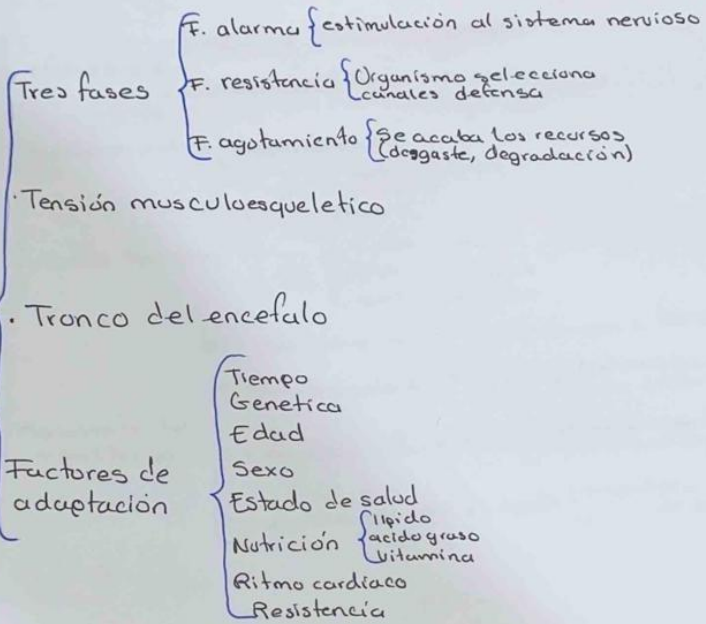 F. alarma { estimulación al sistema nervioso
Tres fases
F. resistencia { Organismo selecciona
canales defensa
F. agotamiento { Se acaba los recursos
(desgaste, degradación)
· Tensión musculoesqueletico
· Tronco del encefalo
Factores de
adaptación
Tiempo
Genetica
Edad
Sexo
Estado de salud
Nutrición { lipido
acido graso
vitamina
Ritmo cardiaco
Resistencia